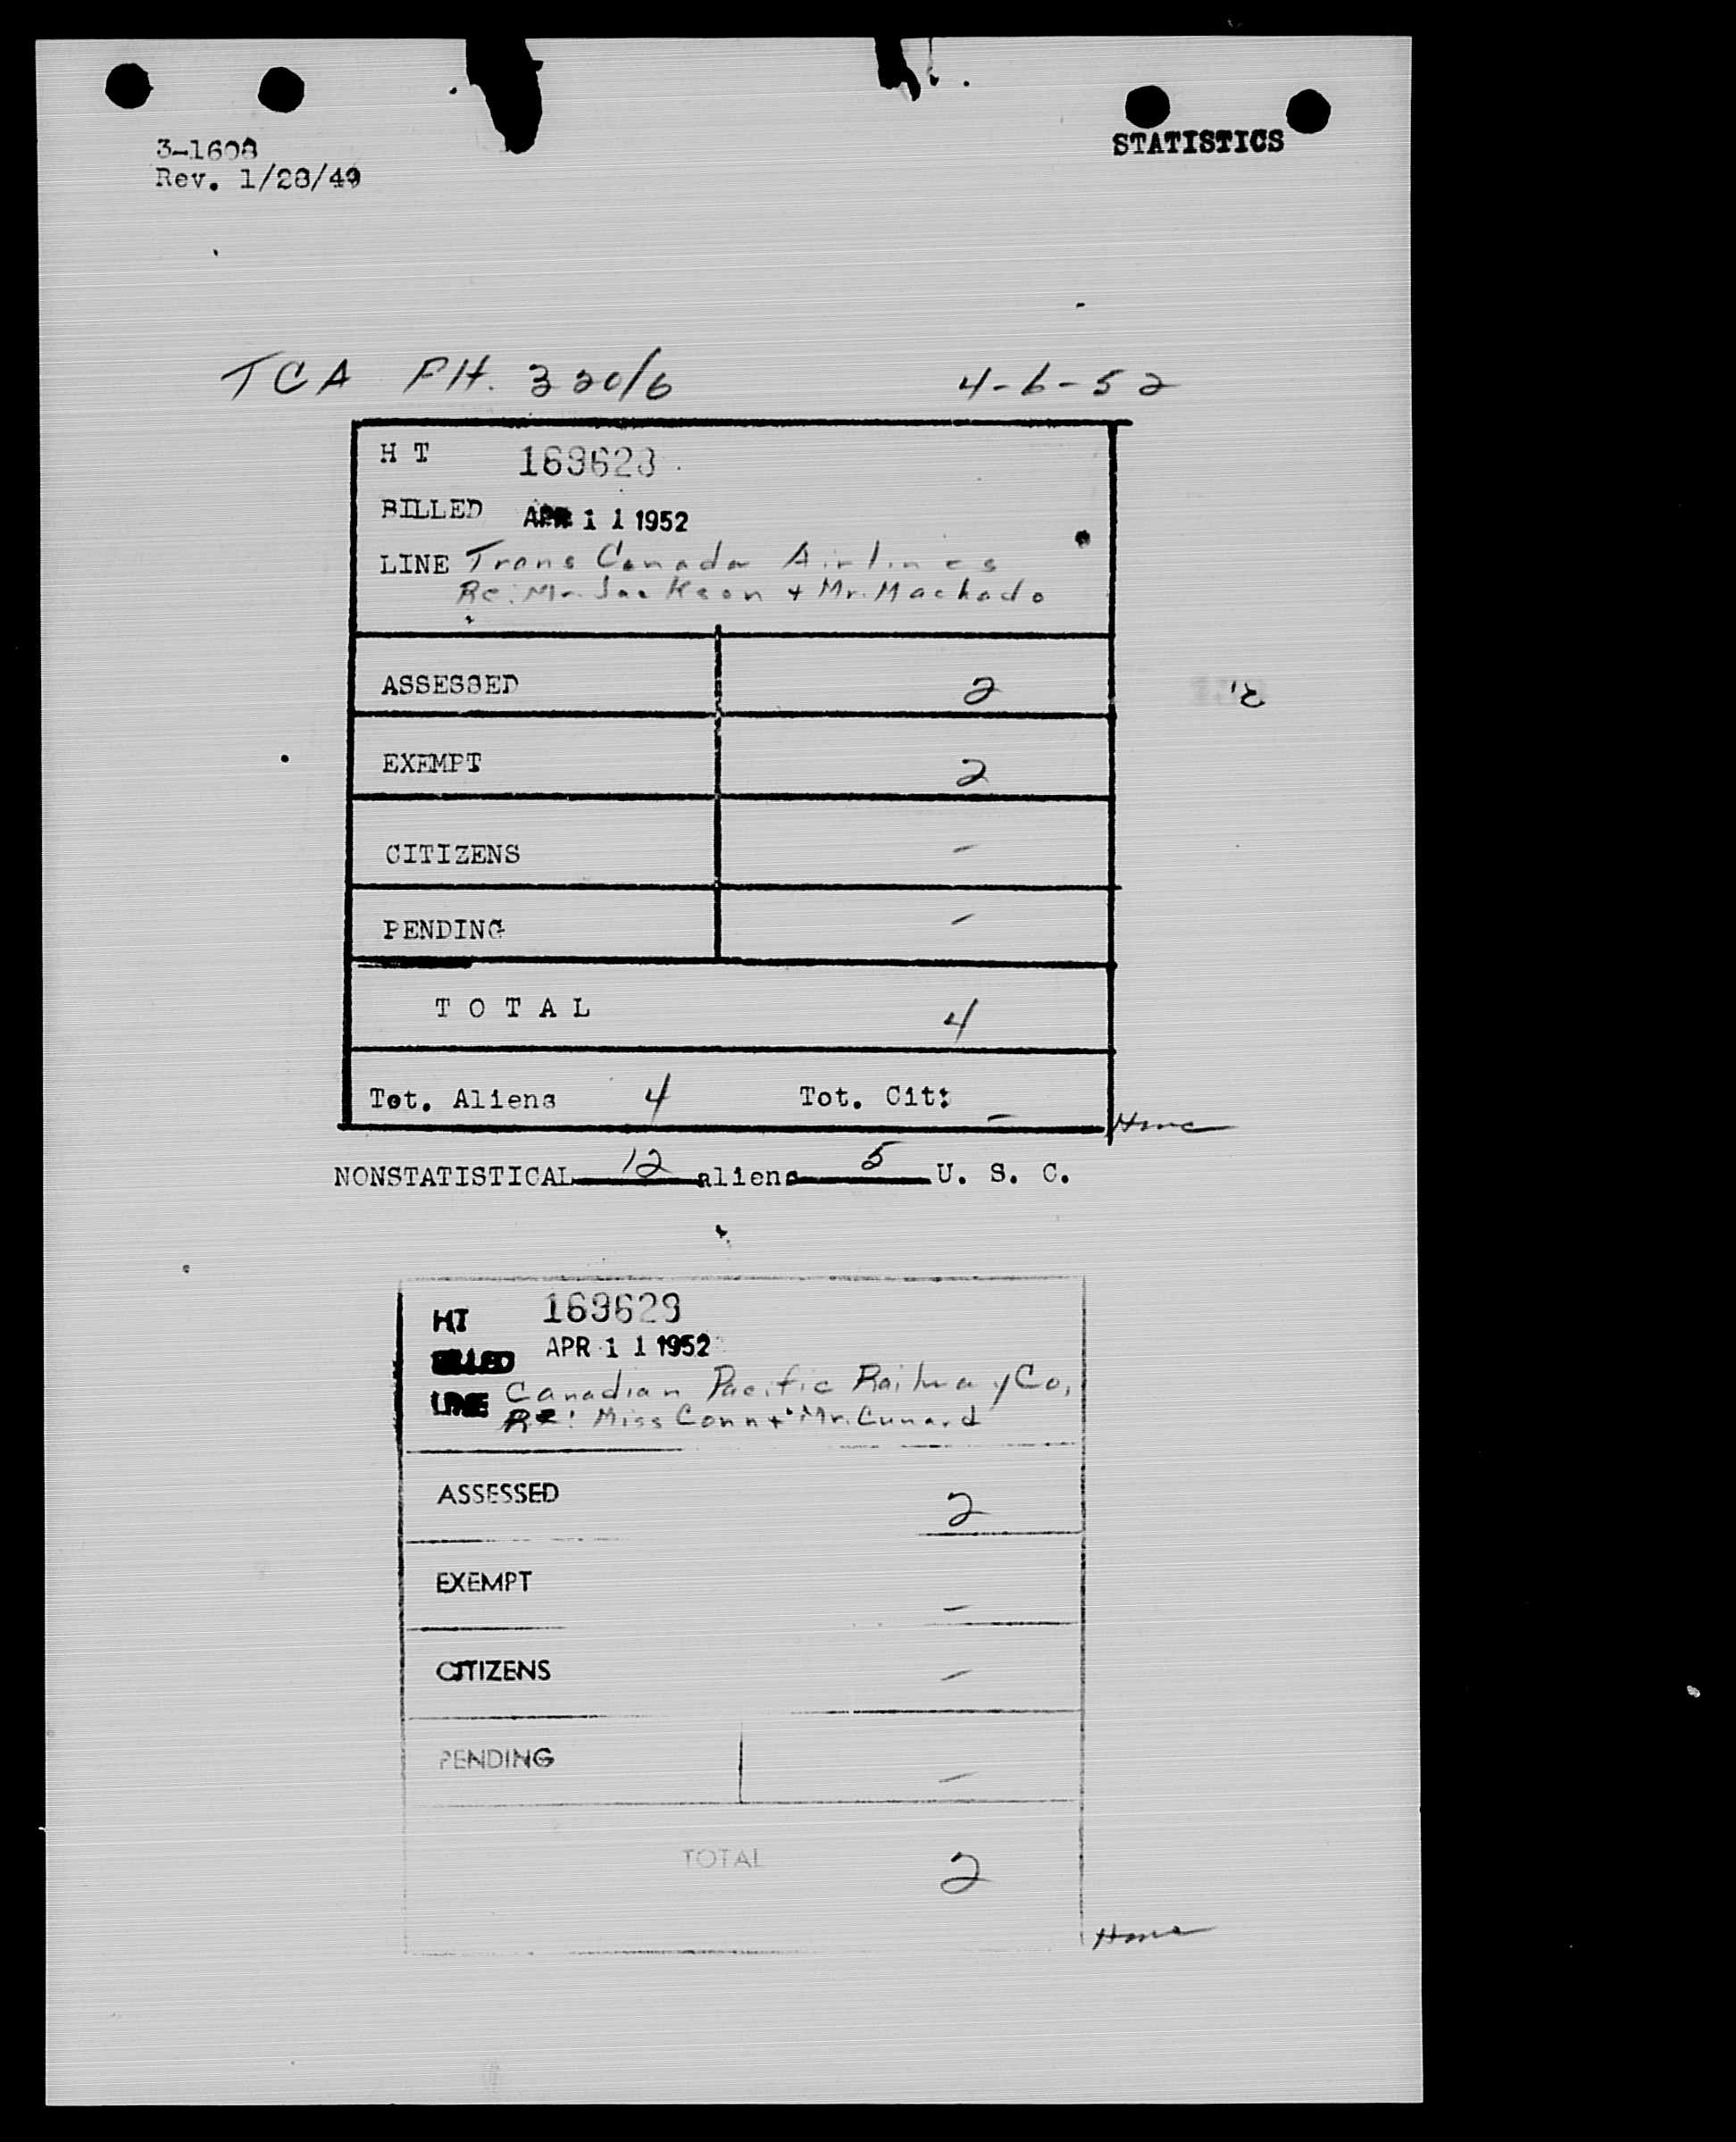 3-1608
Rev. 1/28/49
STATISTICS
TCA FH. 320/6 4-6-52
H T 169628
BILLED APR 11 1952
LINE Trans Canada Airlines
Re: Mr. Jackson + Mr. Machado
ASSESSED 2
EXEMPT 2
CITIZENS -
PENDING -
T O T A L 4
Tot. Aliens 4 Tot. Cit: -
NONSTATISTICAL 12 aliens 5 U. S. C.
HT 169629
BILLED APR 11 1952
LINE Canadian Pacific Railway Co,
Re: Miss Conn + Mr. Cunard
ASSESSED 2
EXEMPT -
CITIZENS -
PENDING -
TOTAL 2